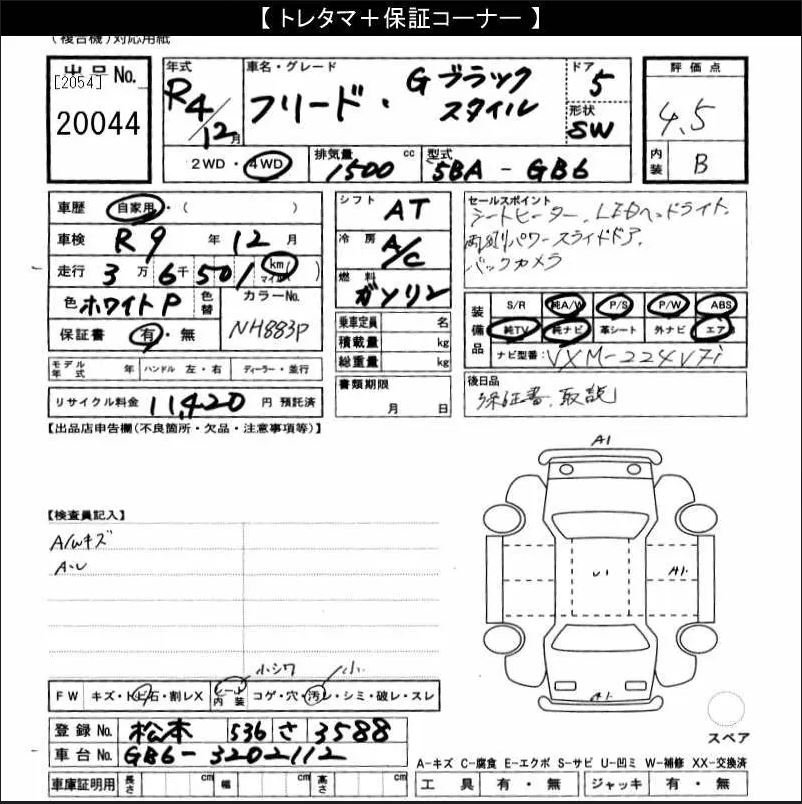 【 トレタマ＋保証コーナー 】
(複合機)対応用紙
出品 No.
[2054]
20044
年式
R4/12月
車名・グレード
フリード・Gブラックスタイル
ドア
5
形状
SW
2WD・4WD
排気量
1500 cc
型式
5BA - GB6
評価点
4.5
内装
B
車歴 自家用・( )
車検 R9 年 12 月
走行 3万 6千 501 (km マイル)
色 ホワイトP 色替
カラーNo.
NH883P
保証書 有・無
モデル年式 年 ハンドル 左・右 ディーラー・並行
リサイクル料金 11,420 円 預託済
シフト AT
冷房 A/C
燃料 ガソリン
乗車定員 名
積載量 kg
総重量 kg
書類期限
月 日
セールスポイント
シートヒーター、LEDヘッドライト、
両側パワースライドドア、
バックカメラ
装備品
S/R 純A/W P/S P/W ABS
純TV 純ナビ 革シート 外ナビ エア
ナビ型番: VXM-224VFi
後日品
保証書、取説
【出品店申告欄(不良箇所・欠品・注意事項等)】
【検査員記入】
A/Wキズ
A・U
A1
U1
A1.
A1.
スペア
小シワ
小
FW キズ・トビ石・割レX シート内装 コゲ・穴・汚レ・シミ・破レ・スレ
登録 No. 松本 536 さ 3588
車台 No. GB6-3202112
車庫証明用 長さ cm 幅 cm 高さ cm
A-キズ C-腐食 E-エクボ S-サビ U-凹ミ W-補修 XX-交換済
工具 有・無 ジャッキ 有・無